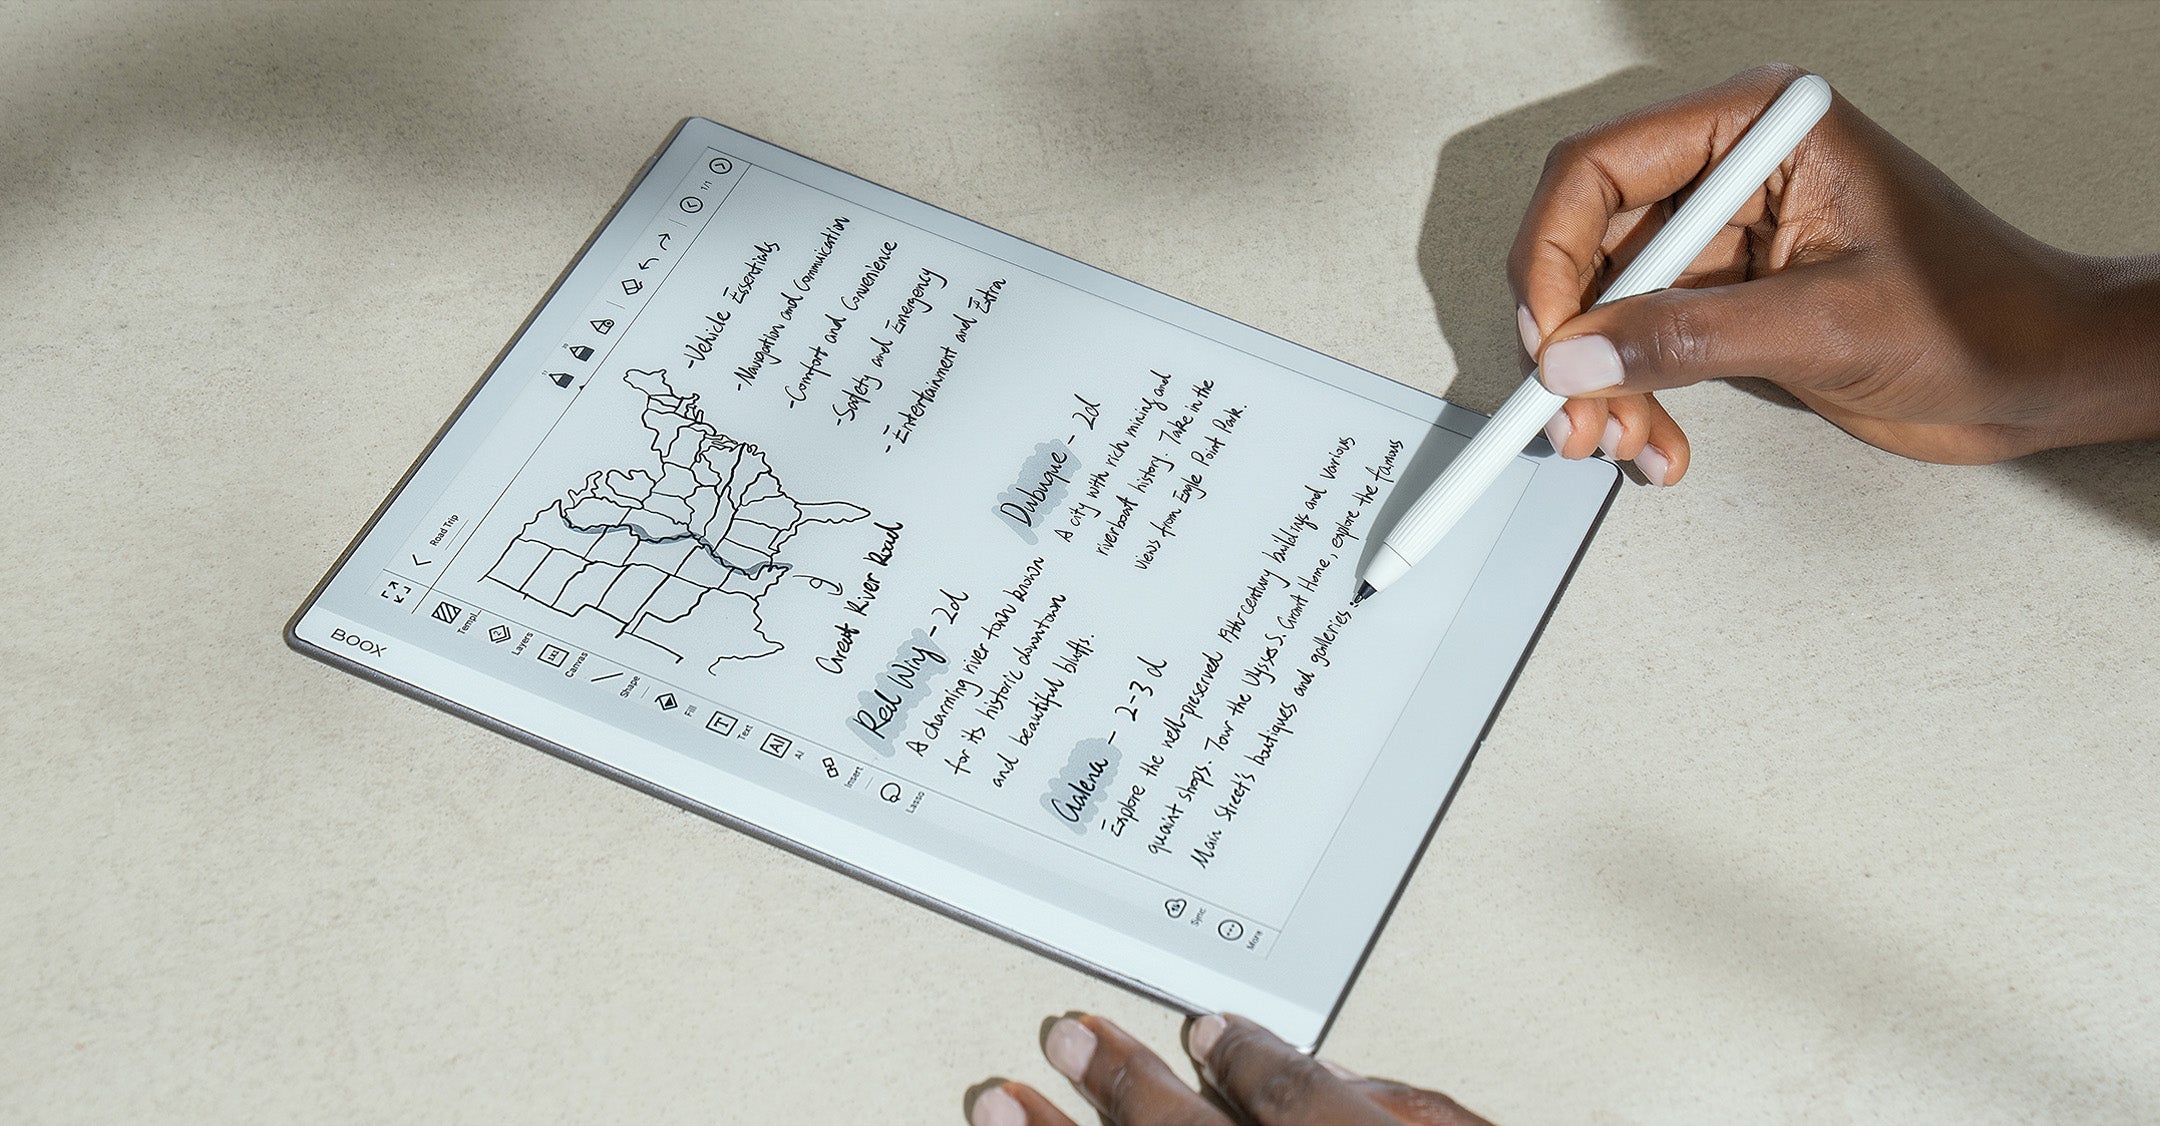 BOOX
Road Trip
1/1
Templ...
Layers
Canvas
Shape
Fill
Text
AI
AI
Insert
Lasso
Sync
More
-Vehicle Essentials
-Navigation and Communication
-Comfort and Convenience
-Safety and Emergency
-Entertainment and Extra
Great River Road
Red Wing - 2d
A charming river town known
for its historic downtown
and beautiful bluffs.
Dubuque - 2d
A city with rich mining and
riverboat history. Take in the
views from Eagle Point Park.
Galena - 2-3 d
Explore the well-preserved 19th-century buildings and various
quaint shops. Tour the Ulysses S. Grant Home, explore the famous
Main Street's boutiques and galleries.